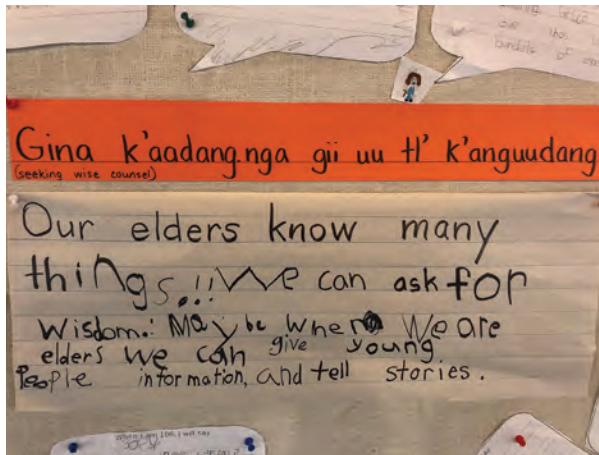 Gina k'aadang.nga gii uu tl' k'anguudang
(seeking wise counsel)
Our elders know many
things.!! We can ask for
Wisdom.: Maybe when We are
elders we can give young
People information, and tell stories.